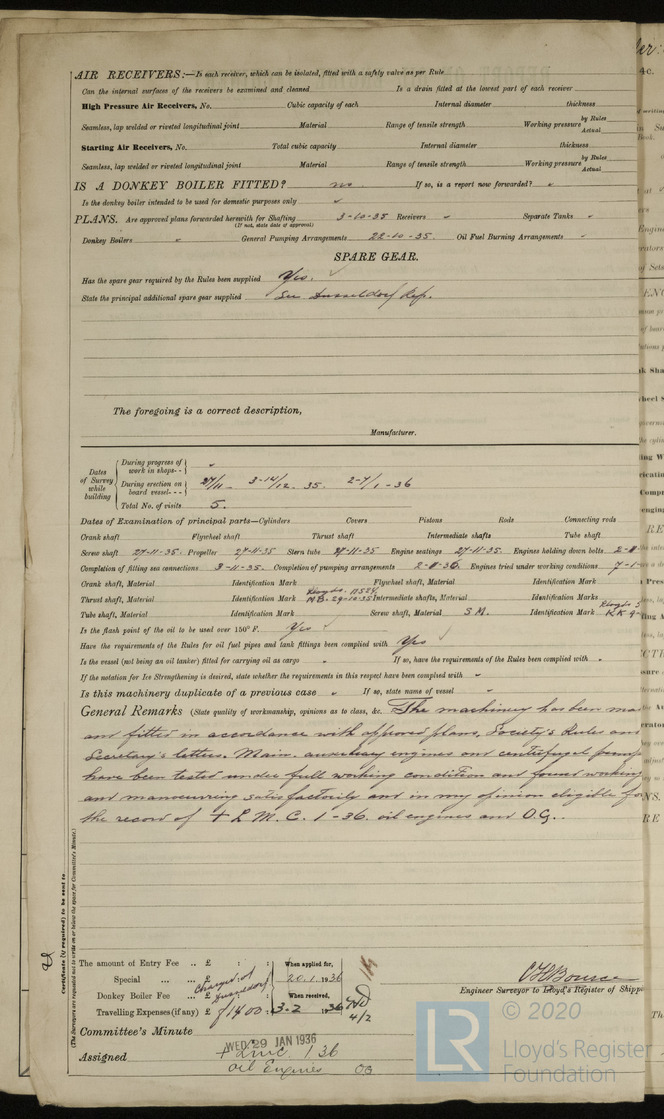 AIR RECEIVERS:—Is each receiver, which can be isolated, fitted with a safety valve as per Rule
Can the internal surfaces of the receivers be examined and cleaned Is a drain fitted at the lowest part of each receiver
High Pressure Air Receivers, No. Cubic capacity of each Internal diameter thickness
Seamless, lap welded or riveted longitudinal joint Material Range of tensile strength Working pressure by Rules Actual
Starting Air Receivers, No. Total cubic capacity Internal diameter thickness
Seamless, lap welded or riveted longitudinal joint Material Range of tensile strength Working pressure by Rules Actual
IS A DONKEY BOILER FITTED? no If so, is a report now forwarded? "
Is the donkey boiler intended to be used for domestic purposes only "
PLANS. Are approved plans forwarded herewith for Shafting 3-10-35 Receivers " Separate Tanks "
(If not, state date of approval)
Donkey Boilers " General Pumping Arrangements 22-10-35. Oil Fuel Burning Arrangements "
SPARE GEAR.
Has the spare gear required by the Rules been supplied Yes. ✓
State the principal additional spare gear supplied See Dusseldorf Rep.
The foregoing is a correct description,
Manufacturer.
Dates of Survey while building
During progress of work in shops - - "
During erection on board vessel - - - 27/11 - 3-14/12. 35. 2-7/1-36
Total No. of visits 5.
Dates of Examination of principal parts—Cylinders Covers Pistons Rods Connecting rods
Crank shaft Flywheel shaft Thrust shaft Intermediate shafts Tube shaft
Screw shaft 27-11-35. Propeller 27-11-35 Stern tube 27-11-35 Engine seatings 27-11-35. Engines holding down bolts
Completion of fitting sea connections 3-11-35. Completion of pumping arrangements Engines tried under working conditions 7-1-
Crank shaft, Material Identification Mark Flywheel shaft, Material Identification Mark
Thrust shaft, Material Identification Mark Lloyds. N.B. 29-10-35 Intermediate shafts, Material Identification Marks
Tube shaft, Material Identification Mark Screw shaft, Material S M. Identification Mark Lloyds
Is the flash point of the oil to be used over 150° F. Yes ✓
Have the requirements of the Rules for oil fuel pipes and tank fittings been complied with Yes ✓
Is the vessel (not being an oil tanker) fitted for carrying oil as cargo " If so, have the requirements of the Rules been complied with "
If the notation for Ice Strengthening is desired, state whether the requirements in this respect have been complied with "
Is this machinery duplicate of a previous case " If so, state name of vessel "
General Remarks (State quality of workmanship, opinions as to class, &c. The machinery has been
and fitted in accordance with approved plans, Society's Rules and
Secretary's letters. Main auxiliary engines and centrifugal pump
have been tested under full working condition and found working
and manoeuvring satisfactorily and in my opinion eligible for
the record of + L M. C. 1-36. oil engines and O.G..
Certificate (if required) to be sent to
(The Surveyors are requested not to write on or below the space for Committee's Minute.)
The amount of Entry Fee .. £ : : When applied for,
Special ... ... £ charged at Dusseldorf 20.1.1936
Donkey Boiler Fee ... £ When received,
Travelling Expenses (if any) £ 3.2 1936 4/2
Engineer Surveyor to Lloyd's Register of Shipp
Committee's Minute WED. 29 JAN 1936
Assigned + Lmc 1 36
oil Engines OG
© 2020
LR
Lloyd's Register
Foundation